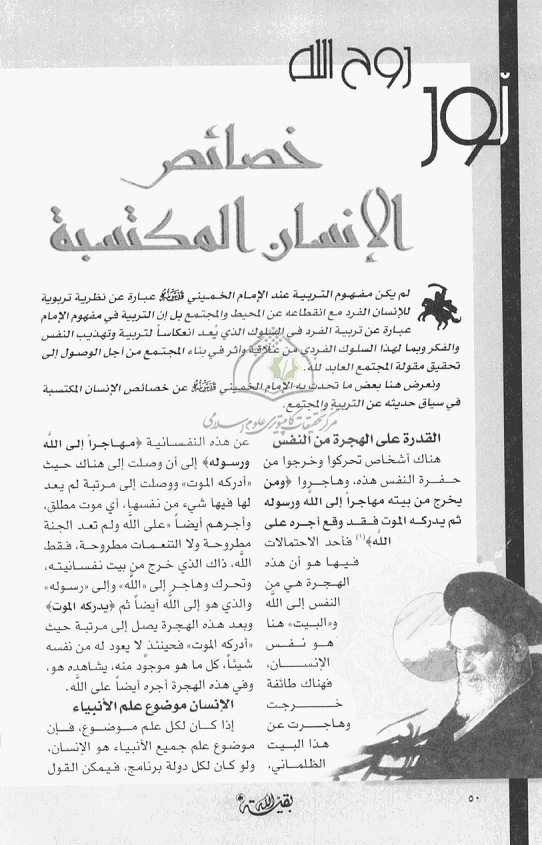 نور
روح الله
خصائص
الإنسان المكتسبة
لم يكن مفهوم التربية عند الإمام الخميني قدس سره عبارة عن نظرية تربوية
للإنسان الفرد مع انقطاعه عن المحيط والمجتمع بل إن التربية في مفهوم الإمام
عبارة عن تربية الفرد في السلوك الذي يُعد انعكاساً لتربية وتهذيب النفس
والفكر وبما لهذا السلوك الفردي من علاقة وأثر في بناء المجتمع من أجل الوصول إلى
تحقيق مقولة المجتمع العابد لله.
ونعرض هنا بعض ما تحدث به الإمام الخميني قدس سره عن خصائص الإنسان المكتسبة
في سياق حديثه عن التربية والمجتمع.
مركز تحقيقات كامپيوترى علوم اسلامى
القدرة على الهجرة من النفس
هناك أشخاص تحركوا وخرجوا من
حفرة النفس هذه، وهاجروا ﴿ومن
يخرج من بيته مهاجراً إلى الله ورسوله
ثم يدركه الموت فقد وقع أجره على
الله﴾(١) فأحد الاحتمالات
فيها هو أن هذه
الهجرة هي من
النفس إلى الله
و«البيت» هنا
هو نفس
الإنسان،
فهناك طائفة
خرجت
وهاجرت عن
هذا البيت
الظلماني،
عن هذه النفسانية ﴿مهاجراً إلى الله
ورسوله﴾ إلى أن وصلت إلى هناك حيث
«أدركه الموت» ووصلت إلى مرتبة لم يعد
لها فيها شيء من نفسها، أي موت مطلق،
وأجرهم أيضاً «على الله ولم تعد الجنة
مطروحة ولا التنعمات مطروحة، فقط
الله، ذاك الذي خرج من بيت نفسانيته،
وتحرك وهاجر إلى «الله» وإلى «رسوله»
والذي هو إلى الله أيضاً ثم ﴿يدركه الموت﴾
وبعد هذه الهجرة يصل إلى مرتبة حيث
«أدركه الموت» فحينئذ لا يعود له من نفسه
شيئاً، كل ما هو موجود منه، يشاهده هو،
وفي هذه الهجرة أجره أيضاً على الله.
الإنسان موضوع علم الأنبياء
إذا كان لكل علم موضوع، فإن
موضوع علم جميع الأنبياء هو الإنسان،
ولو كان لكل دولة برنامج، فيمكن القول
بقية الله
٥٠